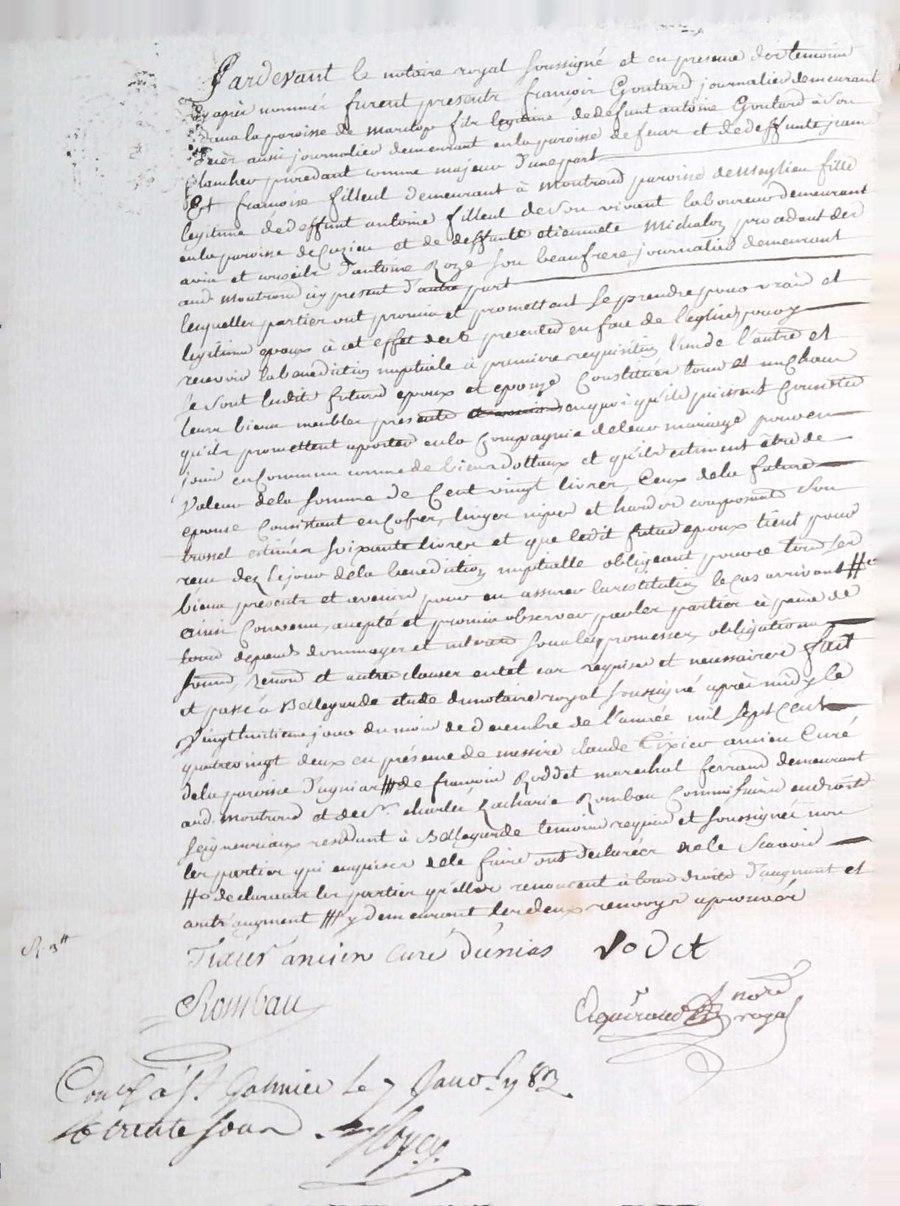 Pardevant le notaire royal soussigné et en presence des temoins
cy apres nommés furent presents françois Goutard journalier demeurant
dans la paroisse de marclop fils legitime de defunt antoine Goutard à son
aussi journalier demeurant en la paroisse de feurs et de deffunte jeanne
plancher procedant comme majeur d'une part
Et françoise filleul demeurant à montrond paroisse de meylieu fille
legitime de deffunt antoine filleul de son vivant laboureur demeurant
en la paroisse de Cuzieu et de deffunte etiennete Michalon procedant des
avis et conseils d'antoine Roze son beaufrere journalier demeurant
aud montrond icy present d'autre part
lesquelles parties ont promis et promettent se prendre pour vrais et
legitimes epoux à cet effet de se presenter en face de l'eglise pour y
recevoir la benediction nuptiale à premiere requisition l'un de l'autre et
se sont lesdits futurs epoux et epouze Constitués tous et un chacun
leurs biens meubles presents en quoi qu'ils puissent Consister
qu'ils promettent aporter en la Compagnie de leur mariage pour en
jouir en Commun comme de biens dottaux et qu'ils estiment être de
valeur de la somme de Cent vingt livres, Ceux de la future
epouse Consistant en Cofres, linges nipes et hardes composants son
trossel estimés soixante livres et que ledit futur epoux tient pour
recu dez le jour de la benediction nuptialle obligeant pour ce tous ses
biens presents et avenir pour en assurer la restitution le cas arrivant #
ainsi Convenu, acepté et promis observer par les parties à peine de
tous depends dommages et interets sous les promesses, obligations
soum, renon et autres clauses en tel cas requises et necessaires fait
et passé à Bellegarde etude du notaire royal soussigné après midy le
vingt huitieme jour du mois de decembre de l'année mil sept cent
quatrevingt deux en presence de messire claude Tixier ancien Curé
de la paroisse d'agnias # de francois Roddet marechal ferrand demeurant
aud. montrond et de sr. charles Zacharie Rombau Commissaire en droits
seigneuriaux residant à Bellegarde temoins requis et soussignés non
les parties qui enquises de le faire ont declarées ne le Scavoir
# declarants les parties qu'elles renoncent à tous droits d'augment et
contr'augment # y demeurant les deux renvoys aprouvés
Tixier ancien curé d'unias Rodet
Rombau notre
royal
Conlé à St. Galmier le 7 Janv. 1783
trente sous